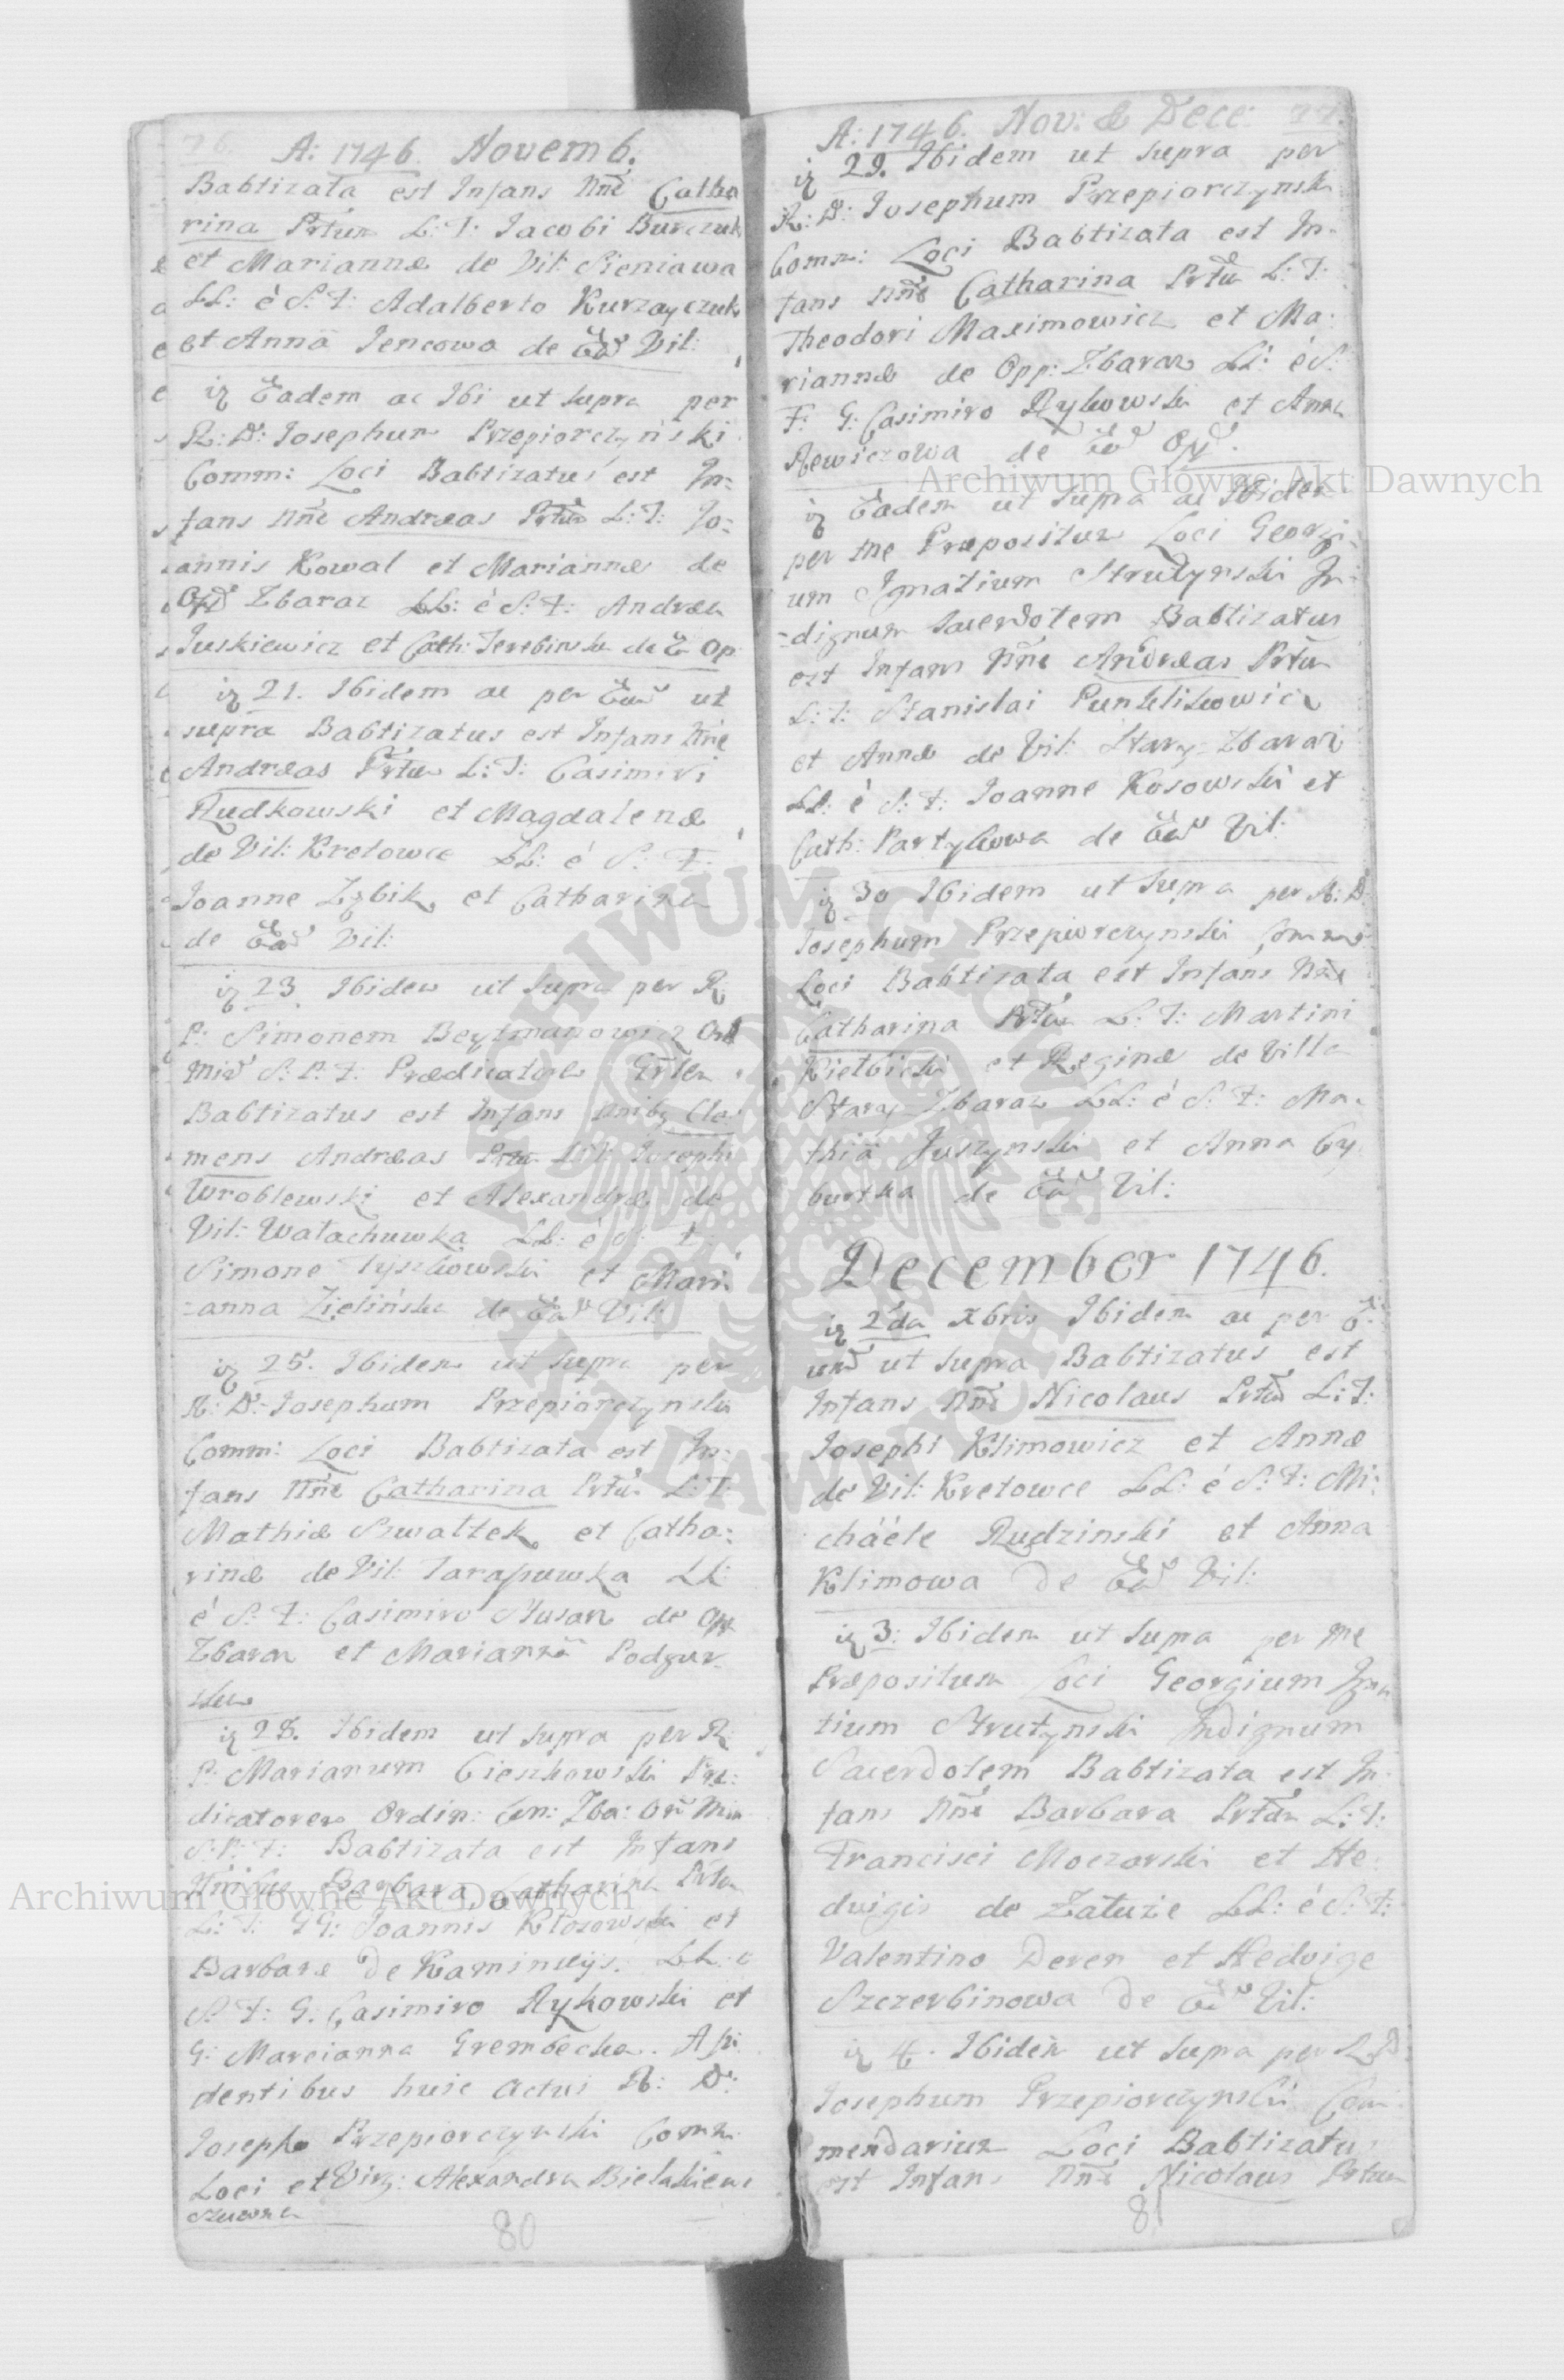 76.
A: 1746. Novemb.
Babtizata est Infans Nñe Catha
rina Prtũm L: T: Jacobi Burczuk
et Mariannæ de Vil: Sieniawa
LL: è S: F: Adalberto Kurzayczuk
et Anna Jencowa de Eãd Vil:
iz Eadem ac Ibi ut supra per
R: D: Josephum Przepiorczyński
Comm: Loci Babtizatus est In:
fans Nñe Andreas Prtũm L: T: Jo:
annis Kowal et Mariannæ de
Opd Zbaraz LL: è S: F: Andrea
Juskiewicz et Cath: Terebinska de E Op
iz 21. Ibidem ac per Eũnd ut
supra Babtizatus est Infans Nñe
Andreas Prtũm L: T: Casimiri
Rudkowski et Magdalenæ
de Vil: Kretowce LL: è S: F:
Joanne Zębik et Catharina
de Eãd Vil:
iz 23. Ibidem ut supra per R
P: Simonem Beytmanowicz Ord
Min S: P: F: Prædicatore
Babtizatus est Infans Nnibz Cle
mens Andreas Prtũ L: T: Josephi
Wroblewski et Alexandræ de
Vil: Watachuwka LL: è S: F:
Simone Tyszkowski et Mari
anna Zielińska de Eãd Vil:
iz 25. Ibidem ut supra per
R: D: Josephum Przepiorczynski
Comm: Loci Babtizata est In:
fans Nñe Catharina Prtũm L: T:
Mathiæ Szwaltek et Catha:
rinæ de Vil: Tarapuwka LL:
è S: F: Casimiro Slusarz de Opp
Zbaraz et Marianna Podgur
ska
iz 28. Ibidem ut supra per R
P: Marianum Cieszkowski Præ:
dicatorem Ordin: Con: Zba: Ord Min
S: P: F: Babtizata est Infans
Nñibus Barbara, Catharina Prtum
L: T: GG: Joannis Klosowski et
Barbaræ De Kaminscijs. LL: è
S: F: G: Casimiro Rykowski et
G: Marcianna Grembecka. Assi
dentibus huic actui R: D:
Josepho Przepiorczynski Comm
Loci et Virg: Alexandra Bielakiewi
czuwna
80
A: 1746. Nov: & Dece: 77.
iz 29. Ibidem ut supra per
R: D: Josephum Przepiorczynski
Comm: Loci Babtizata est In:
fans Nñe Catharina Prtũ L: T:
Theodori Maximowicz et Ma:
riannæ de Opp: Zbaraz LL: è S:
F: G: Casimiro Rykowski et Anna
Rewiczowa de Eõd Opd.
iz Eadem ut supra ac Ibidem
per me Præpositum Loci Georgi:
um Ignatium Strutynski In:
dignum Sacerdotem Babtizatus
est Infans Nñe Andreas Prtũm
L: T: Stanislai Punklikowicz
et Annæ de Vil: Stary Zbaraz
LL: è S: F: Joanne Kosowski et
Cath: Partykowa de Eãd Vil:
iz 30 Ibidem ut supra per R: D:
Josephum Przepiorczynski Comm
Loci Babtizata est Infans Nñe
Catharina Prtũm L: T: Martini
Kielbicki et Reginæ de Villa
Stary Zbaraz LL: è S: F: Ma:
thia Juszynski et Anna Cy
burska de Eãd Vil:
December 1746.
iz 2da xbris Ibidem ac per E:
und ut supra Babtizatus est
Infans Nñe Nicolaus Prtũm L: T:
Josephi Klimowicz et Annæ
de Vil: Kretowce LL: è S: F: Mi:
chäéle Rudzinski et Anna
Klimowa De Eãd Vil:
iz 3: Ibidem ut supra per me
Præpositum Loci Georgium Igna
tium Strutynski Indignum
Sacerdotem Babtizata est In:
fans Nñe Barbara Prtũm L: T:
Francisci Moczarski et He:
dvigis de Zaluze LL: è S: F:
Valentino Deren et Hedvige
Szczerbinowa De Eãd Vil:
iz 4. Ibidem ut supra per R D
Josephum Przepiorczynski Com
mendarium Loci Babtizatus
est Infans Nñe Nicolaus Prtum
81
Archiwum Główne Akt Dawnych
Archiwum Główne Akt Dawnych
ARCHIWUM GŁÓWNE AKT DAWNYCH